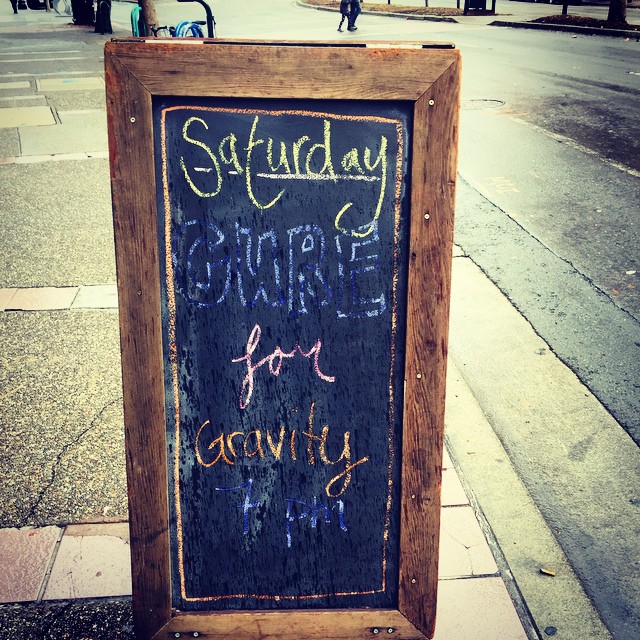 Saturday
for
Gravity
7 pm